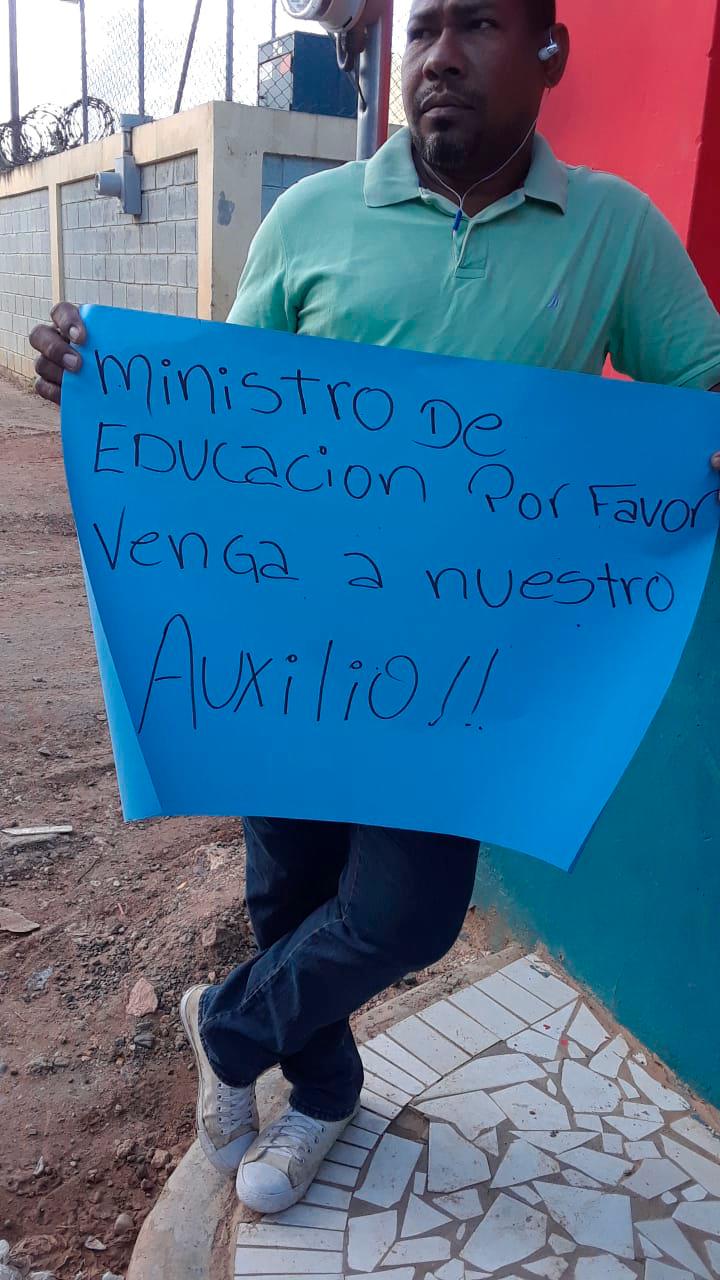 Ministro De
EDUCacion Por Favor
Venga a nuestro
Auxilio!!